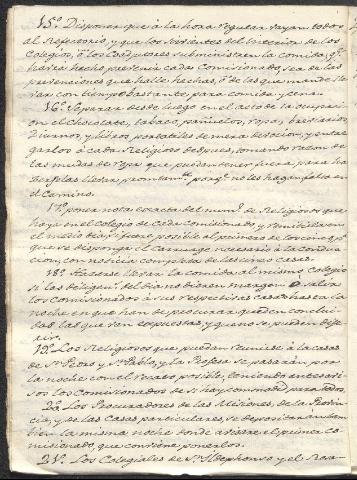 15º Disponer que à la hora regular vayan todos
al Refectorio, y que los sirvientes del interior de los
Colegios, ò los Conductores subministren la comida, q.e
havrà hecho prevenir cada Comisionado, sea de las
prevenciones que halle hechas, ò de las que mande lle-
var con tiempo bastante para comida y cena.
16º Separar desde luego en el acto de la ocupaci-
on el chocolate, tabaco, pañuelos, ropa, breviarios
Diurnos, y libros portatiles de mera devocion, y entre-
garlos à cada Religioso despues, tomando razon de
las mudas de ropa que puedan tener fuera, para ha-
cerselas llevar prontam.te porq.e no les hagan falta en
el Camino.
17º poner nota exacta del num.o de Religiosos que
haya en el colegio de cada comisionado, y remitirla en
el medio dia, si fuere posible al primero de los cinco, p.a
que se disponga el Carruage necesario à la conduc-
cion, con noticia completa de las cinco casas.
18º Hacerse llevar la comida al mismo Colegio
si las diligen.s del dia no dieren margen à salir
los comisionados à sus respectivas casas hasta la
noche en que han de procurar queden conclui-
das las que van expuestas, y que no se pueden dife-
rir.
19º Los Religiosos que puedan reunirse à la casa
de S.n Pedro, y S.n Pablo, y la Profesa se pasaràn por
la noche con el posible,
los Comisionados de si hay comodidad para todos.
20 Los Procuradores de las Misiones, de la Provin-
cia, y de las Casas particulares, se depositaràn tam-
bien la misma noche donde avisare el primer Co-
misionado, que conviene ponerlos.
21º Los Colegiales de S.n Ildephonso y el Rosa-